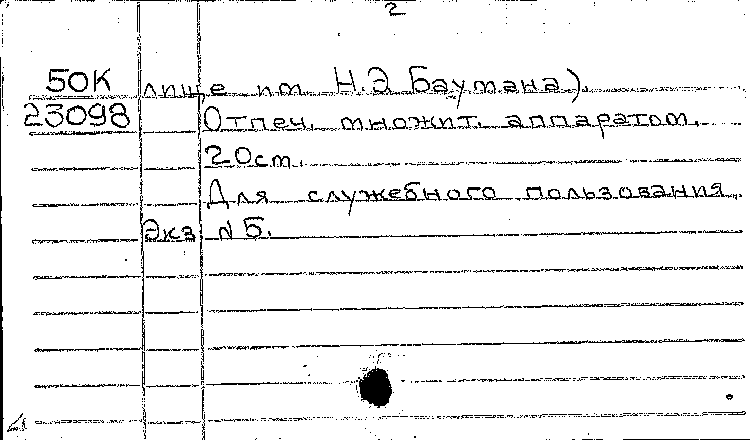 2
50К лище им. Н.Э Баумана).
23098 Отпеч. множит. аппаратом.
20см.
Для служебного пользования
Экз №5.